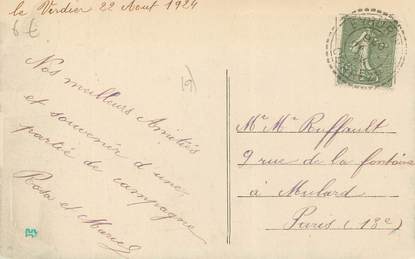 le Verdier 22 Aout 1924
6€
Nos meilleurs Amitiés
et souvenir d'une
partie de campagne
Rosa et Marie
Mr Mme Ruffault
9 rue de la fontaine
à Mulard
Paris (13e)